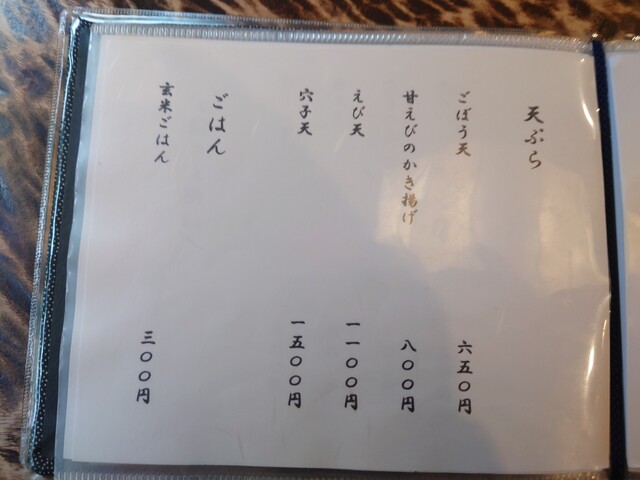 天ぷら
ごぼう天 六五〇円
甘えびのかき揚げ 八〇〇円
えび天 一一〇〇円
穴子天 一五〇〇円
ごはん
玄米ごはん 三〇〇円